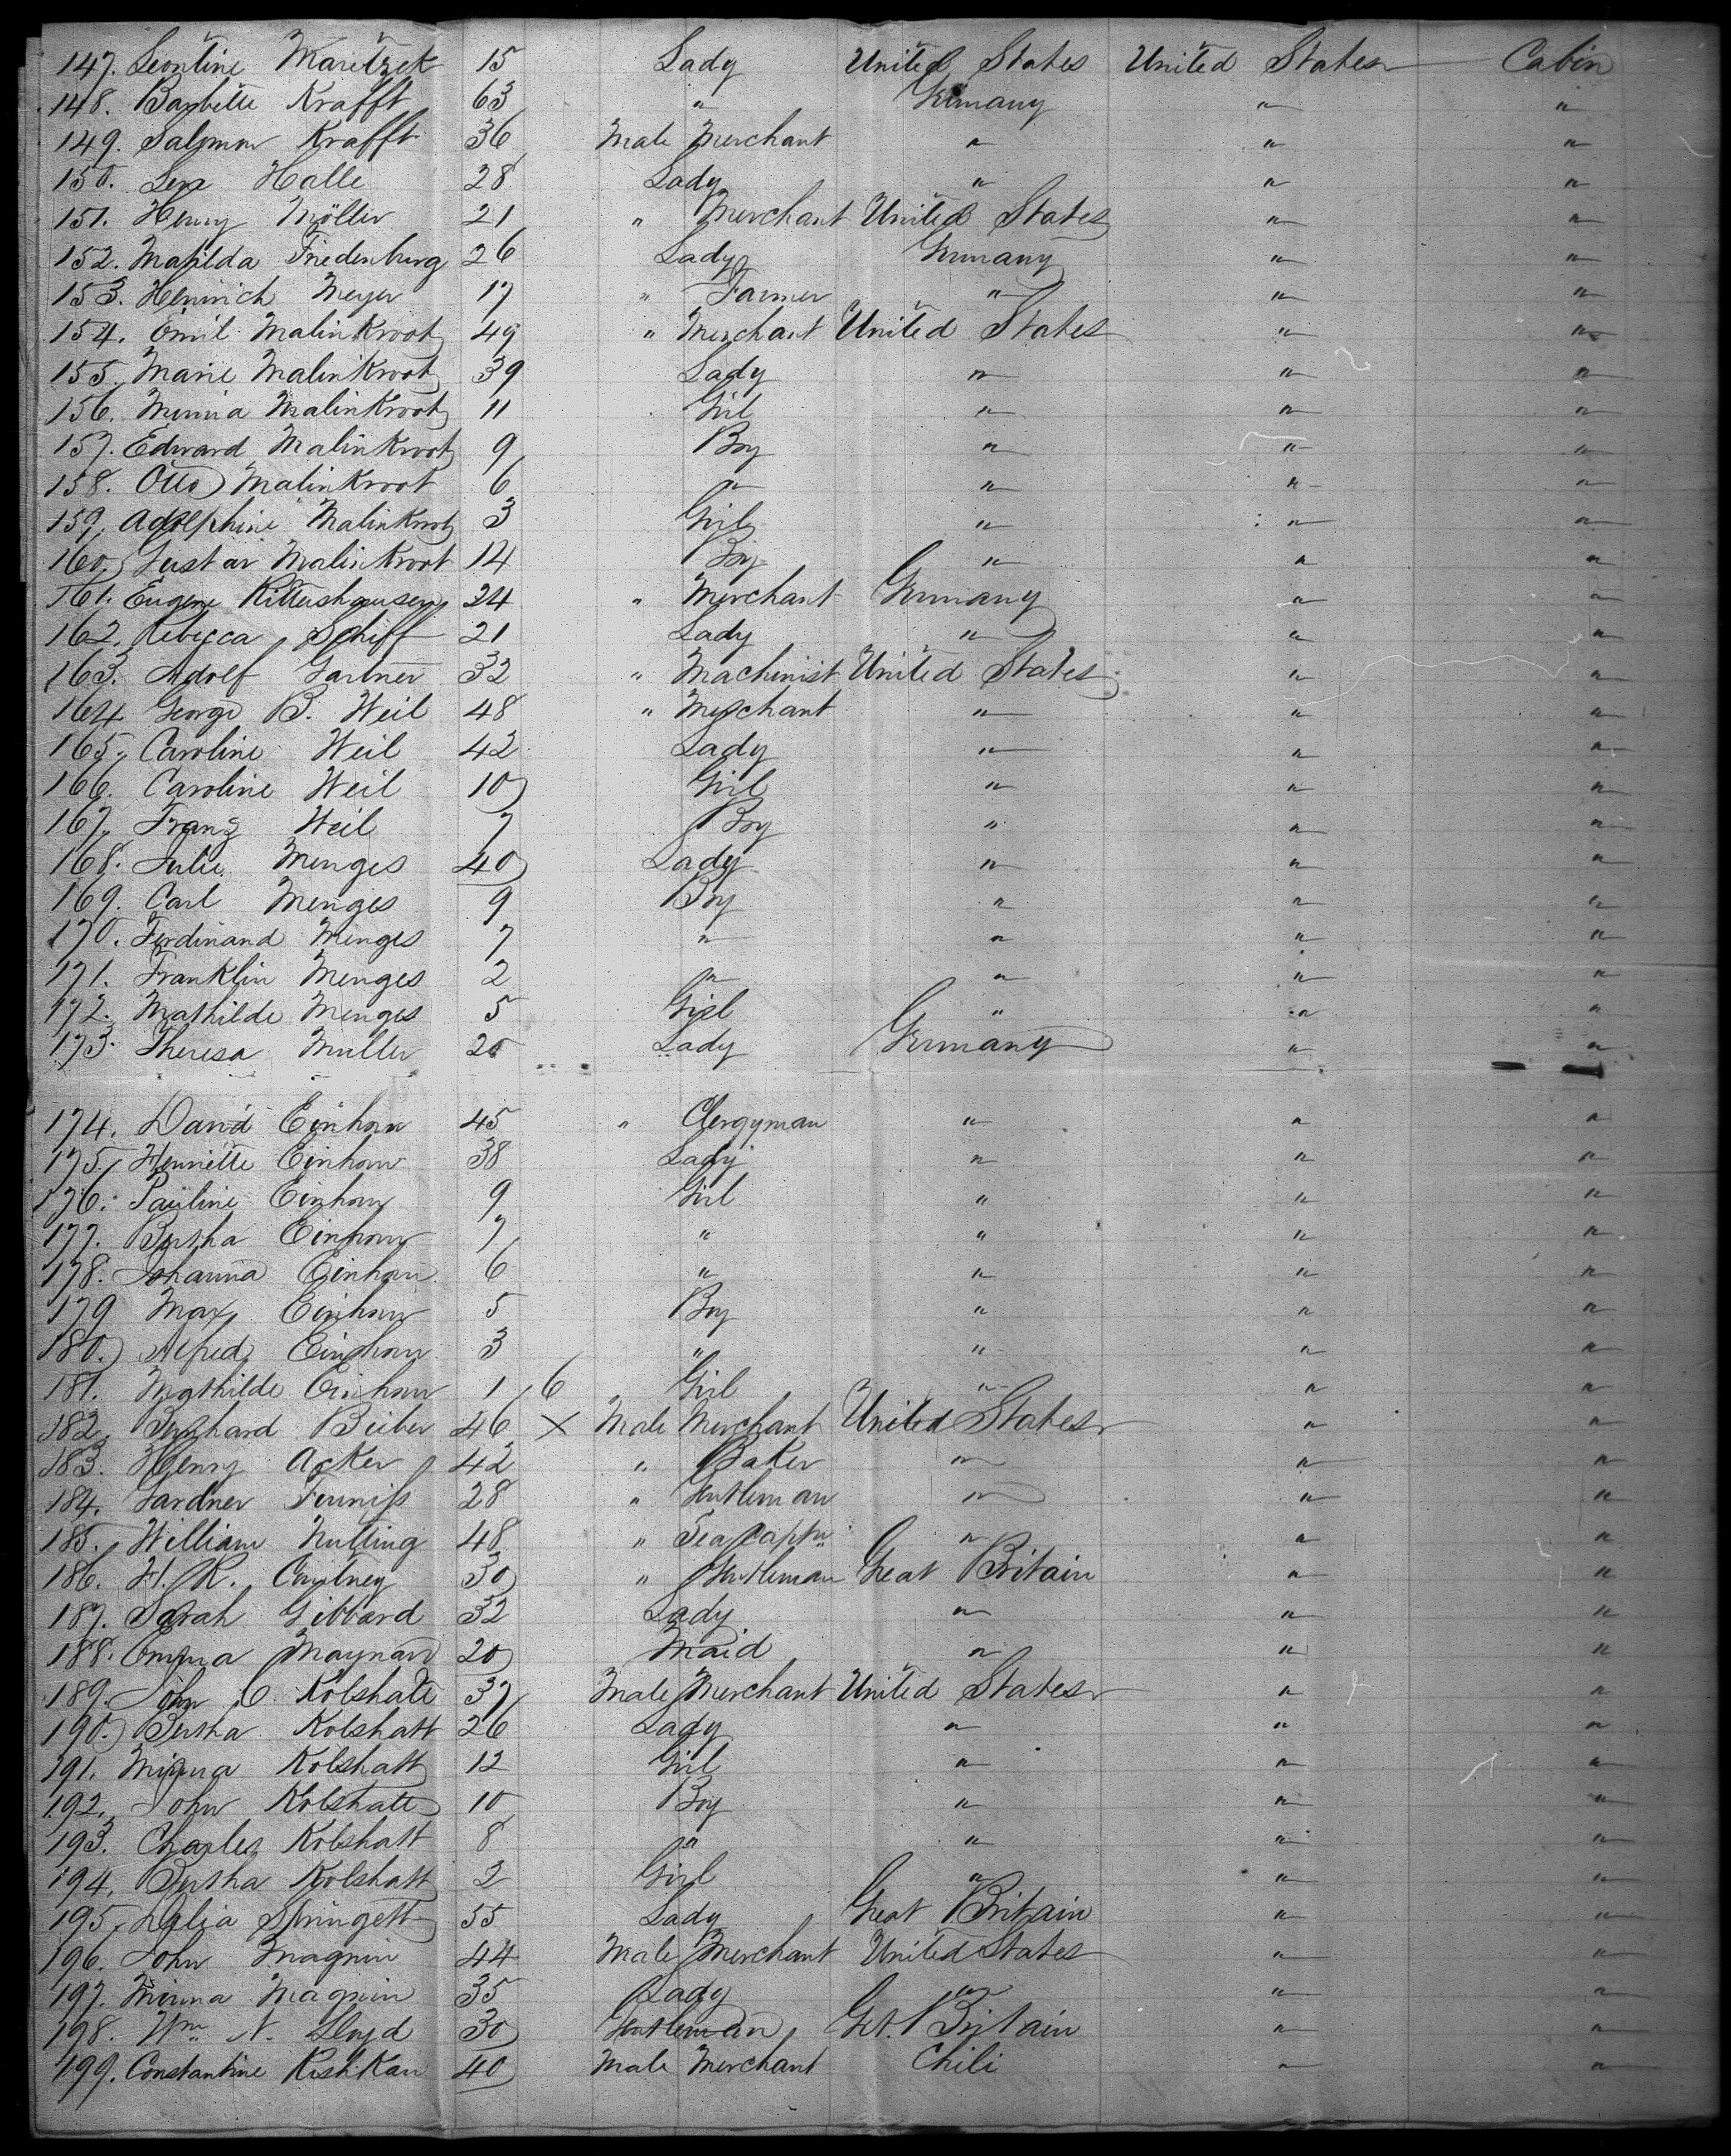 147. Leontine Maretzek 15 Lady United States United States Cabin
148. Babette Krafft 63 " Germany " "
149. Salomon Krafft 36 Male Merchant " " "
150. Lena Halle 28 Lady " " "
151. Henry Möller 21 " Merchant United States " "
152. Matilda Friedenburg 26 Lady Germany " "
153. Heinrich Meyer 17 " Farmer " " "
154. Emil Malinkroot 49 " Merchant United States " "
155. Marie Malinkroot 39 Lady " " "
156. Minna Malinkroot 11 Girl " " "
157. Edward Malinkroot 9 Boy " " "
158. Otto Malinkroot 6 " " " "
159. Adolphine Malinkroot 3 Girl " " "
160. Gustav Malinkroot 14 Boy " " "
161. Eugene Rittershausen 24 " Merchant Germany " "
162. Rebecca Schiff 21 Lady " " "
163. Adolf Gartner 32 " Machinist United States " "
164. George B. Weil 48 " Merchant " " "
165. Caroline Weil 42 Lady " " "
166. Caroline Weil 10 Girl " " "
167. Franz Weil 7 Boy " " "
168. Julie Menges 40 Lady " " "
169. Carl Menges 9 Boy " " "
170. Ferdinand Menges 7 " " " "
171. Franklin Menges 2 " " " "
172. Mathilde Menges 5 Girl " " "
173. Theresa Muller 20 Lady Germany " "
174. David Einhorn 45 " Clergyman " " "
175. Henriette Einhorn 38 Lady " " "
176. Pauline Einhorn 9 Girl " " "
177. Bertha Einhorn 7 " " " "
178. Johanna Einhorn 6 " " " "
179 Max Einhorn 5 Boy " " "
180. Alfred Einhorn 3 " " " "
181. Mathilde Einhorn 1,6 Girl " " "
182. Bernhard Bieber 46 X Male Merchant United States " "
183. Henry Acker 42 " Baker " " "
184. Gardner Furniss 28 " Gentleman " " "
185. William Nutting 48 " Sea Captn " " "
186. H. R. 30 " Gentleman Great Britain " "
187. Sarah Gibbard 32 Lady " " "
188. Emma Maynard 20 Maid " " "
189. John C. Kolshatt 37 Male Merchant United States " "
190. Bertha Kolshatt 26 Lady " " "
191. Minna Kolshatt 12 Girl " " "
192. John Kolshatt 10 Boy " " "
193. Charles Kolshatt 8 " " " "
194. Bertha Kolshatt 2 Girl " " "
195. Delia Springett 55 Lady Great Britain " "
196. John Magnin 44 Male Merchant United States " "
197. Minna Magnin 35 Lady " " "
198. Wm. N. Lloyd 30 Gentleman Gt. Britain " "
199. Constantine 40 Male Merchant Chili " "